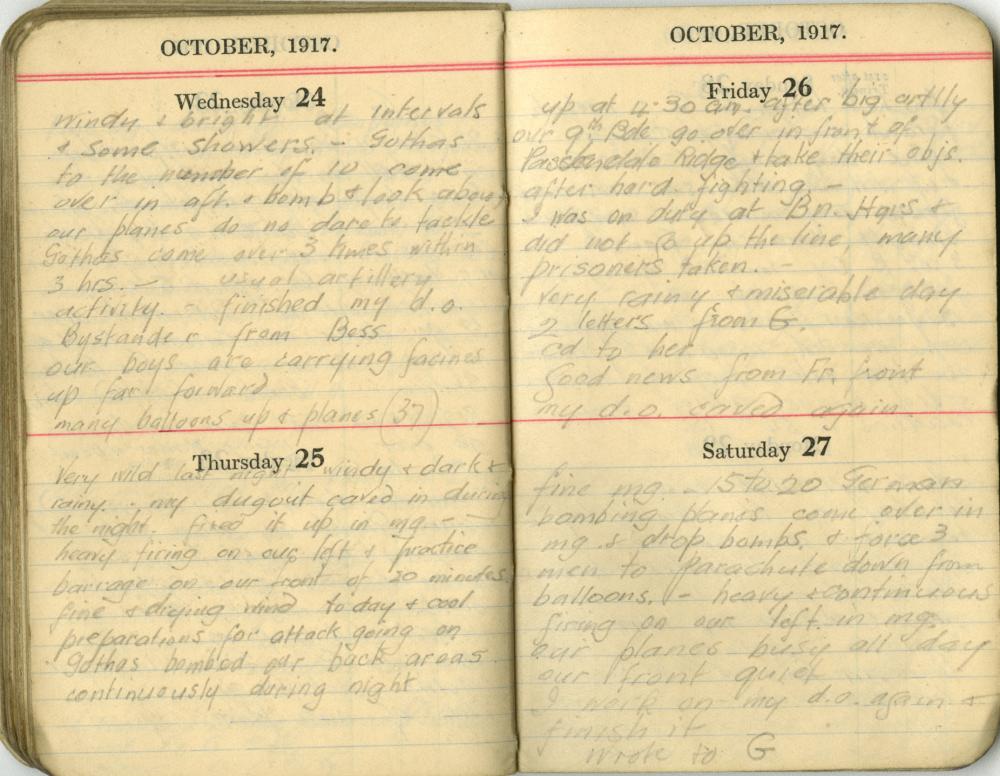 OCTOBER, 1917.
Wednesday 24
windy & bright at intervals
& some showers. - Gothas
to the number of 10 come
over in aft. & bomb & look about
our planes do no dare to tackle
Gothas come over 3 times within
3 hrs. - usual artillery
activity. - finished my d.o.
Bystander from Bess
our boys are carrying facines
up far forward
many balloons up & planes (37)
Thursday 25
Very wild last night windy & dark &
rainy. - my dugout caved in during
the night. fixed it up in mg. -
heavy firing on our left & practice
barrage on our front of 20 minutes.
fine & drying wind today & cool
preparations for attack going on
Gothas bombed our back areas
continuously during night
OCTOBER, 1917.
Friday 26
up at 4.30 am. after big artlly
our 9th Bde go over in front of
Passchendale Ridge & take their objs.
after hard fighting. -
I was on duty at Bn. Hqrs &
did not go up the line, many
prisoners taken. -
very rainy & miserable day
2 letters from G.
cd to her
Good news from Fr. front
my d.o. caved again.
Saturday 27
fine mg. - 15 to 20 German
bombing planes come over in
mg. & drop bombs. & force 3
men to parachute down from
balloons. - heavy & continuous
firing on our left in mg.
our planes busy all day
our front quiet
I work on my d.o. again &
finish it
wrote to G